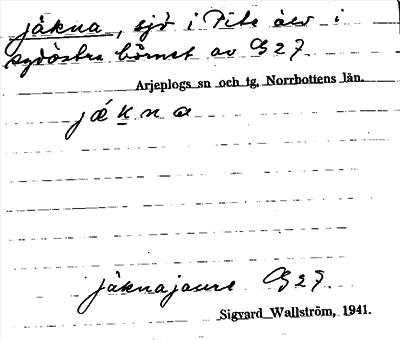 jåkna, sjö i Pite älv i
sydöstra hörnet av G 27
Arjeplogs sn och tg, Norrbottens län.
jǻk̲na
jåknajaure G 27.
Sigvard Wallström, 1941.